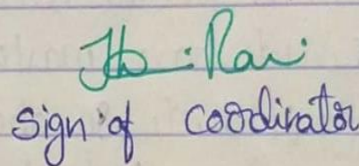 Rai
Sign of coordinator